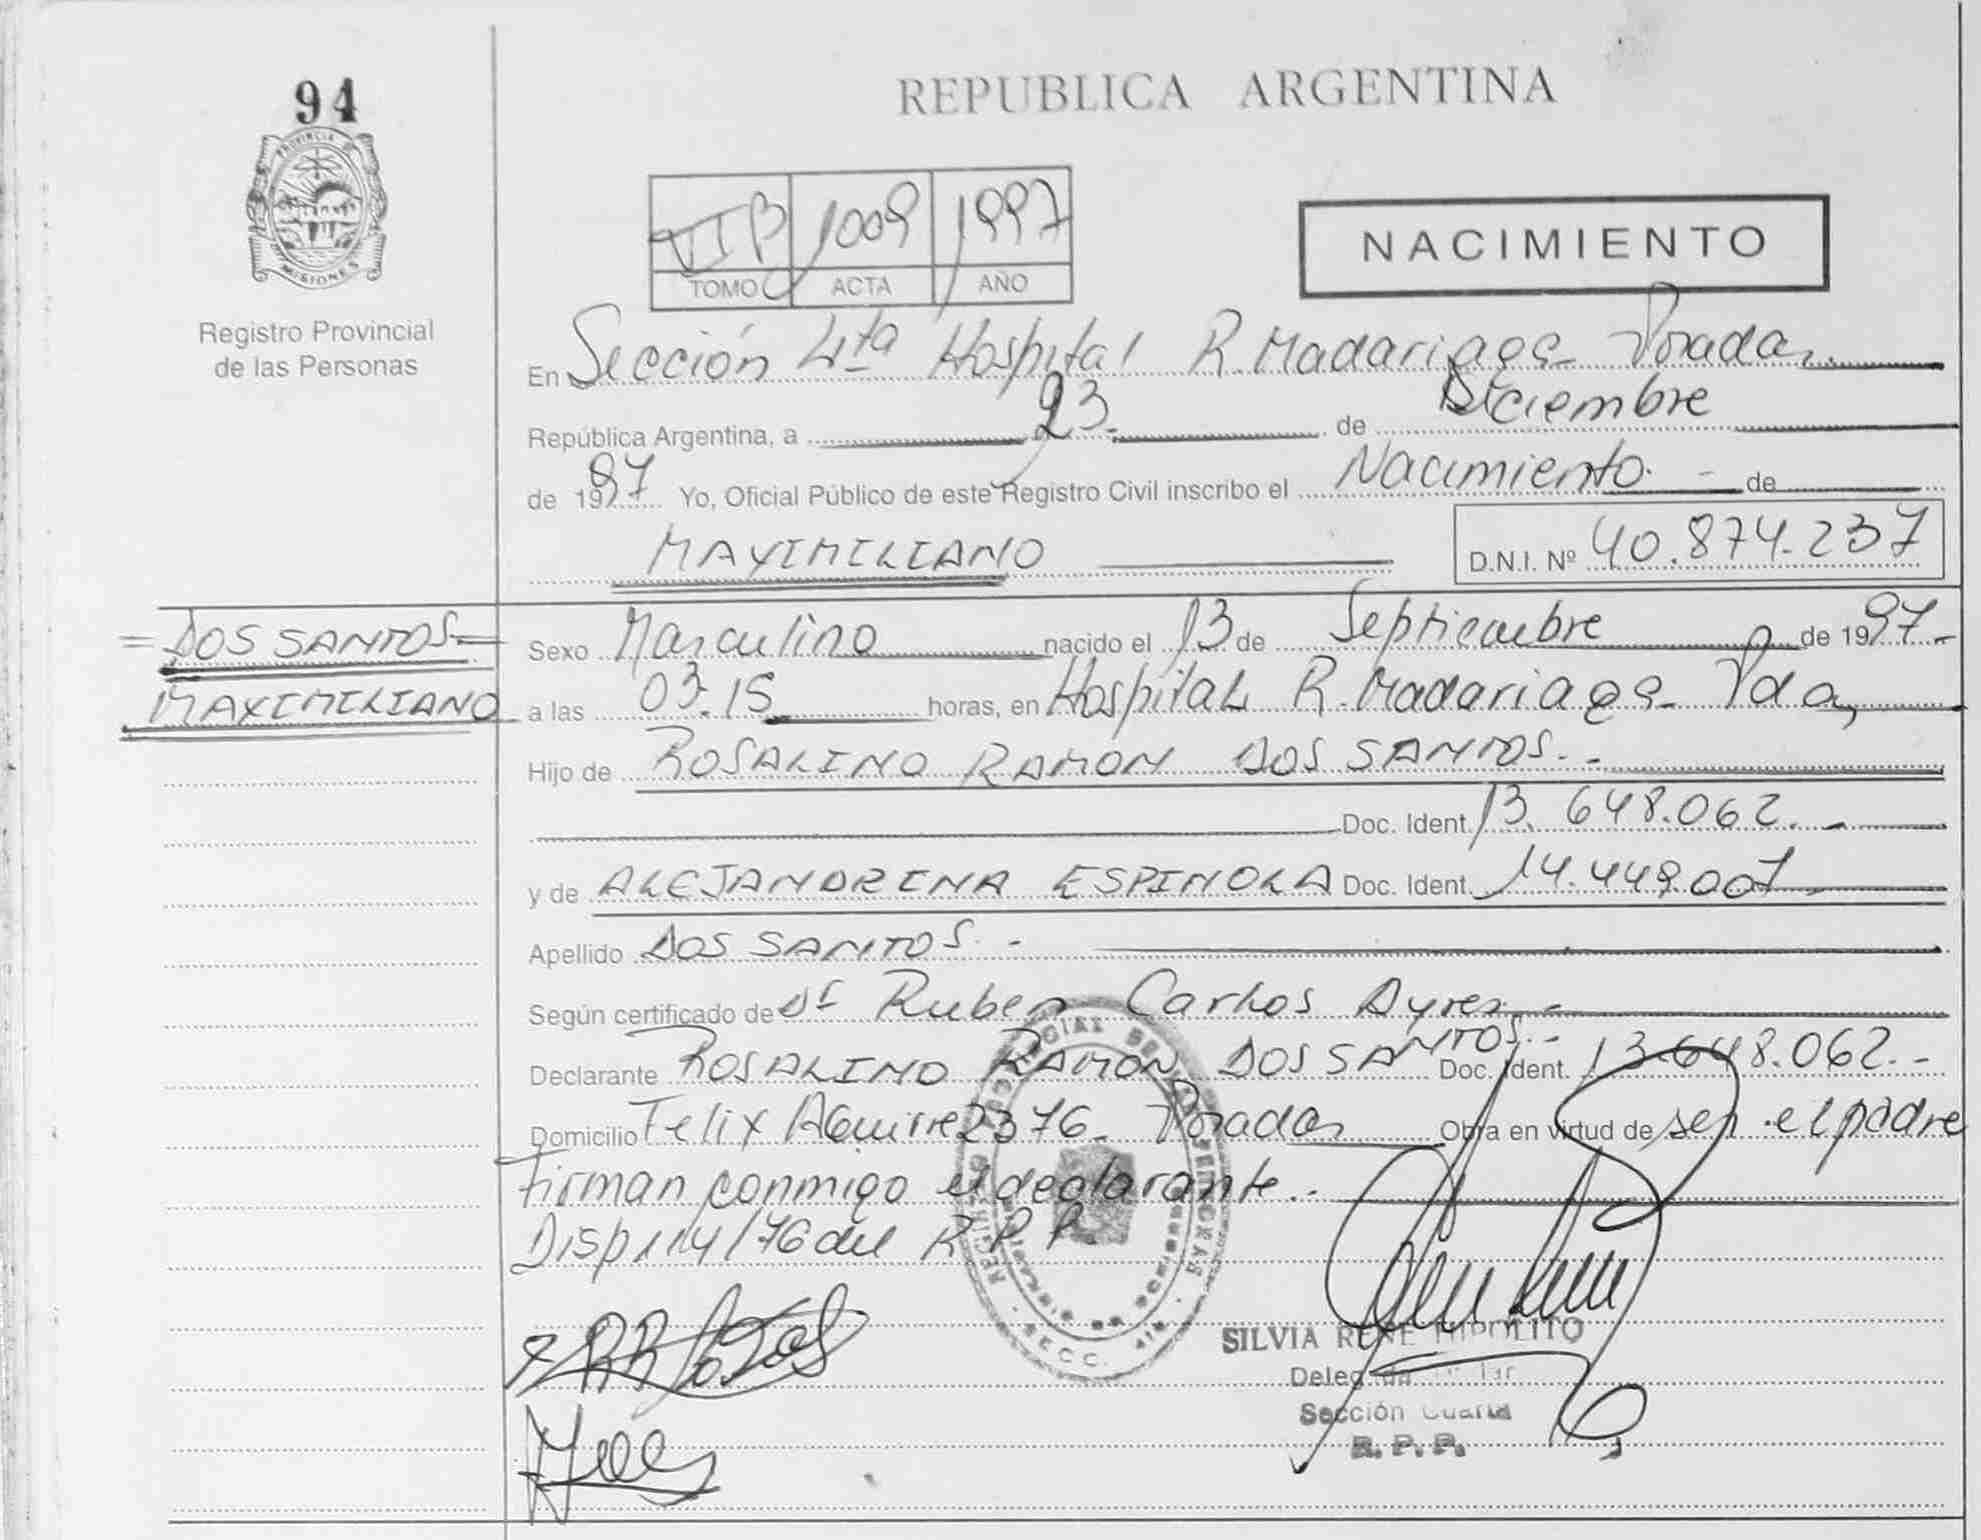 94
PROVINCIA DE
MISIONES
Registro Provincial
de las Personas
REPUBLICA ARGENTINA
1009 1997
TOMO ACTA AÑO
NACIMIENTO
En Sección 4ta Hospital R. Madariaga - Posadas.
República Argentina, a 23. de Diciembre
de 1997 Yo, Oficial Público de este Registro Civil inscribo el Nacimiento. - de
MAXIMILIANO D.N.I. Nº 40.874.237
= DOS SANTOS =
MAXIMILIANO
Sexo Masculino nacido el 13 de Septiembre de 1997.-
a las 03.15 horas, en Hospital R. Madariaga - Pdas,
Hijo de ROSALINO RAMON DOS SANTOS. -
Doc. Ident. 13.648.062. -
y de ALEJANDRINA ESPINOLA Doc. Ident. 14.449.007 -
Apellido DOS SANTOS. -
Según certificado de Dr Ruben Carlos Ayres. -
Declarante ROSALINO RAMON DOS SANTOS. - Doc. Ident. 13.648.062. -
Domicilio Felix Aguirre 2376 - Posadas Obra en virtud de ser el padre
Firman conmigo el declarante. -
Disp 114/76 del R.P.P.
SILVIA RENE HIPOLITO
Sección Cuarta
R. P. P.
SECC. 4ta